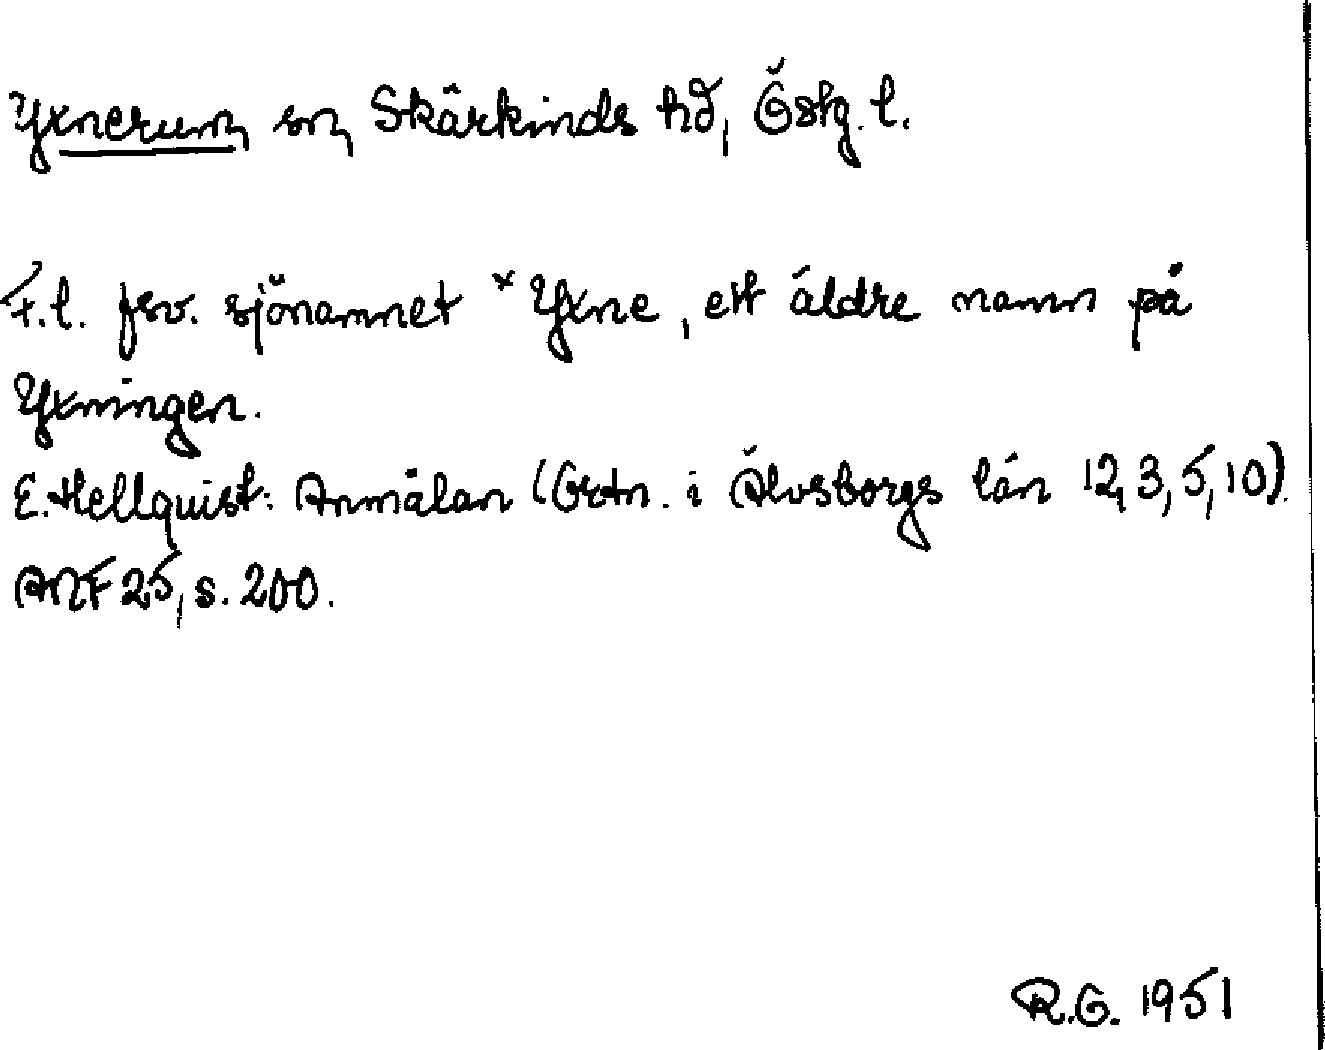 Yxnerum sn, Skärkinds hd, Östg. l.
F.l. fsv. sjönamnet *Yxne, ett äldre namn på
Yxningen.
E. Hellquist: Anmälan (Ortn. i Älvsborgs län 12, 3, 5, 10).
ANF 25, s. 200.
R.G. 1951